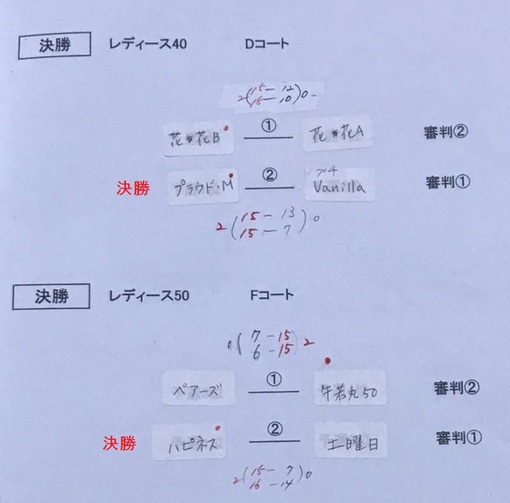 決勝 レディース40 Dコート
2(15-12 15-10)0
花*花B ① 花*花A 審判②
決勝 プラウド・M ② Vanilla 審判①
2(15-13 15-7)0
決勝 レディース50 Fコート
0(7-15 6-15)2
ベアーズ ① 牛若丸50 審判②
決勝 ハピネス ② 土曜日 審判①
2(15-7 16-14)0